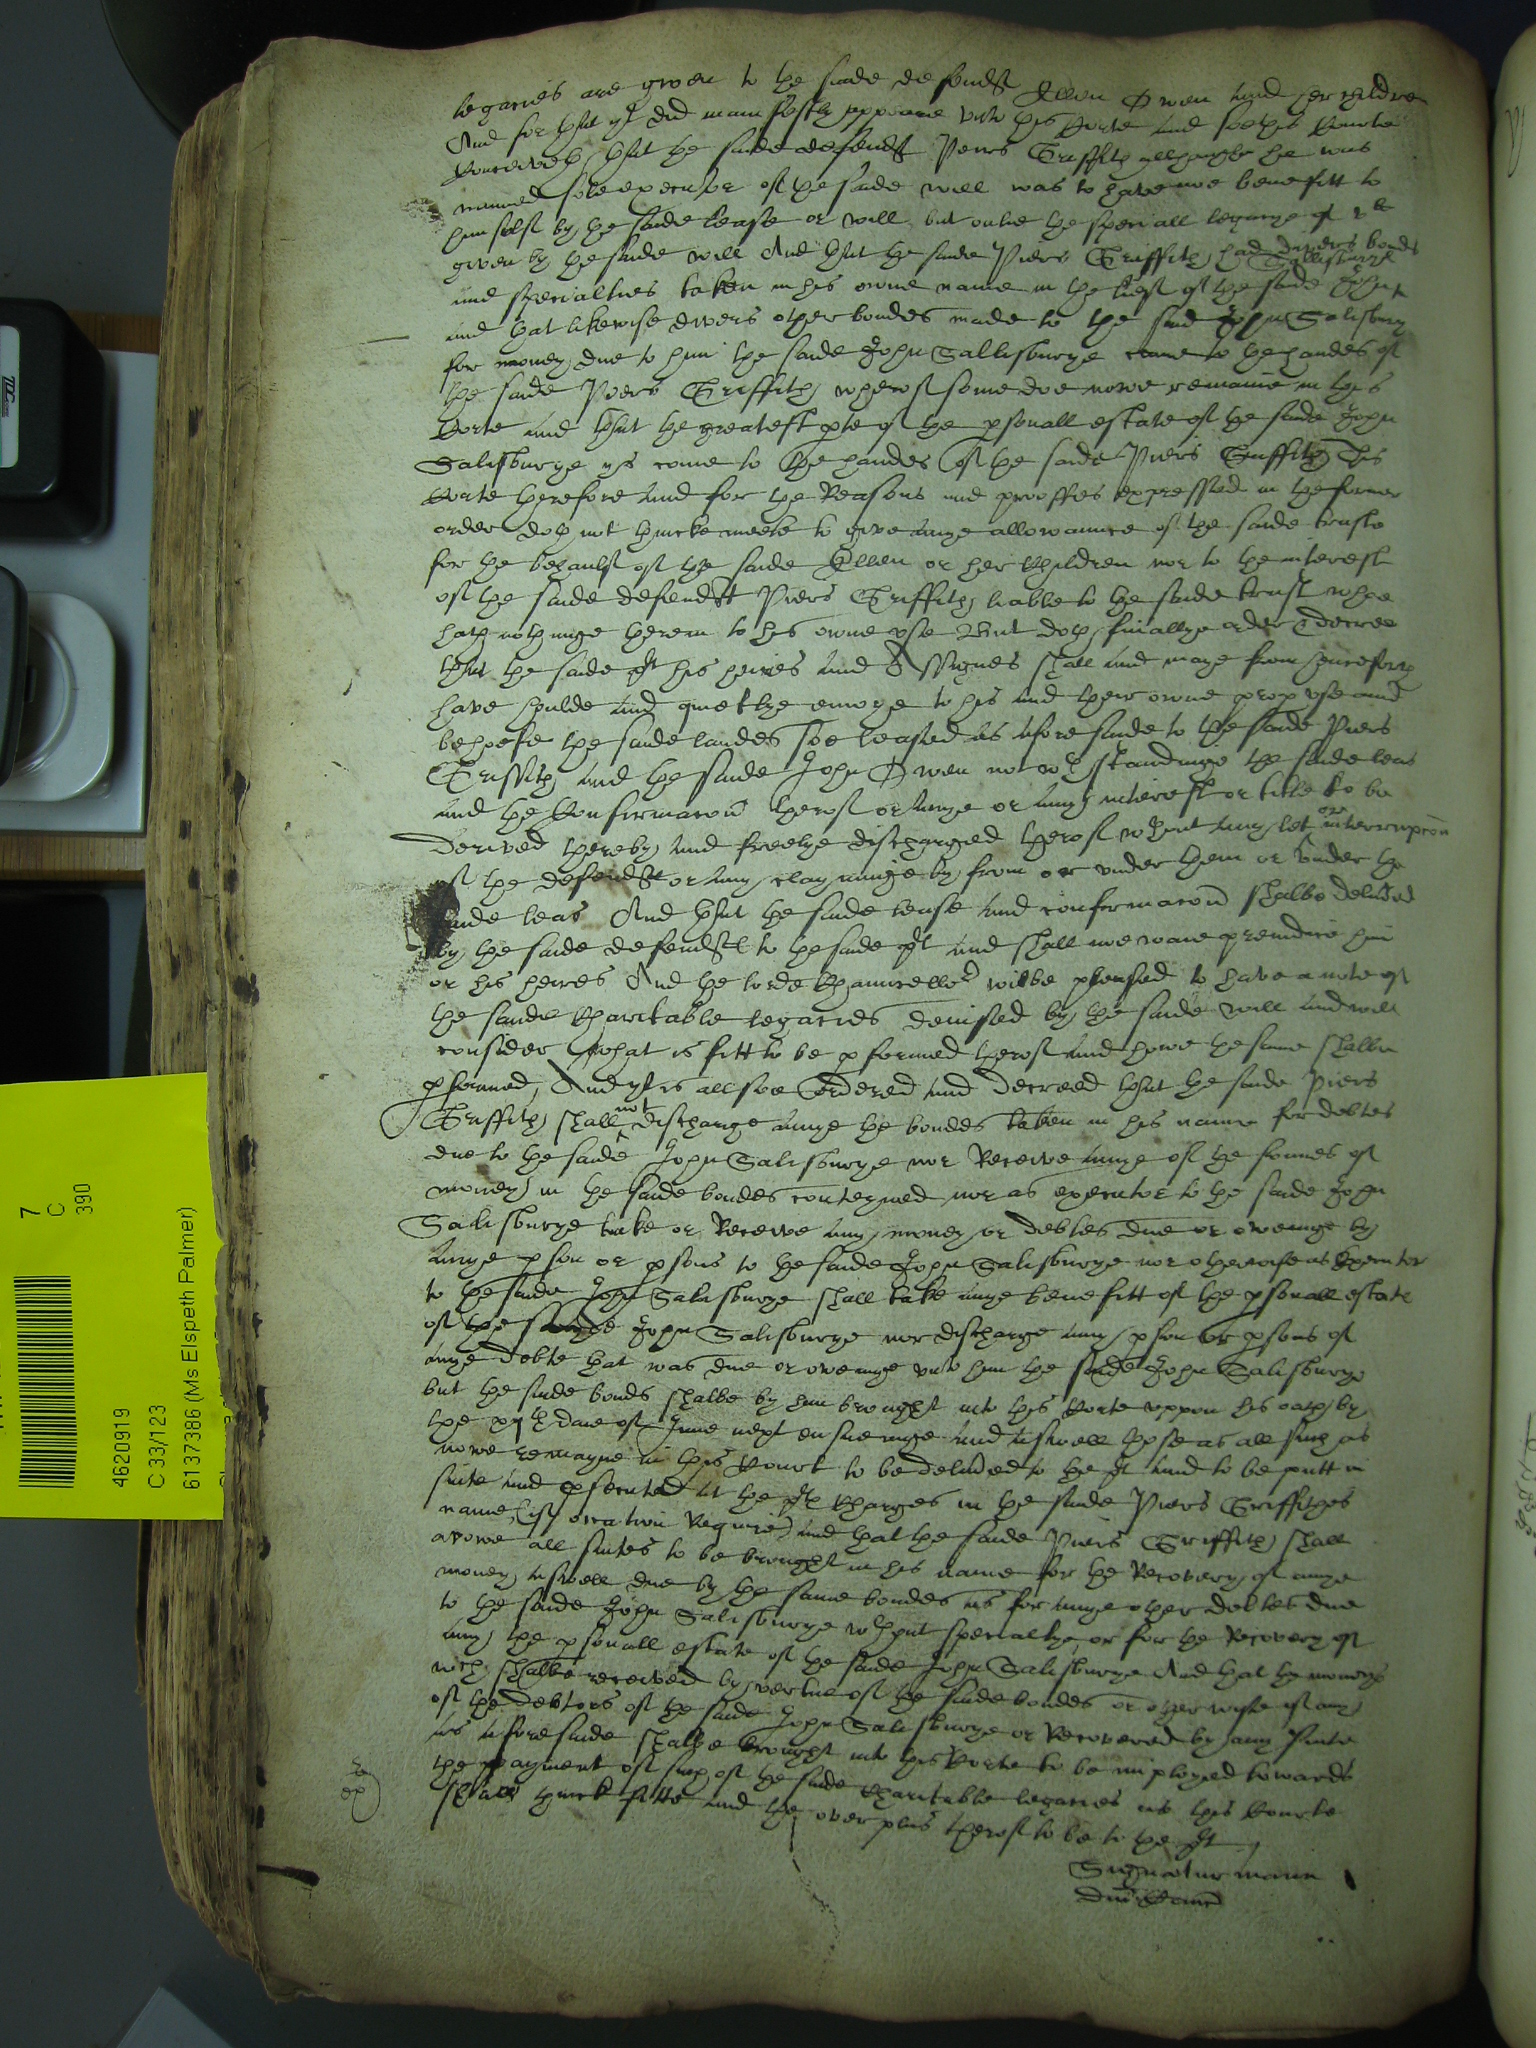 legacies are given to the saide defendt Ellen Owen and her children
And for that yt did manifestly appeare unto this Corte and soe this Courte
conceiveth that the saide defendt Peirs Griffith allthough he was
named sole executor of the saide will was to have noe benefitt to
himselfe by the saide lease or will but onlie the speciall legacye of vli
given by the saide will And that the saide Piers Griffith had divers bonds
and specialties taken in his owne name in the lief of the saide John Sallisburye
and that likewise divers other bondes made to the said John Salisbury
for money due to him the saide John Sallisburye came to the handes of
the saide Peers Griffith wherof some doe nowe remaine in this
Corte and that the greatest pte of the psonall estate of the saide John
Salisburye ys come to the handes of the saide Piers Griffith This
Corte therefore and for the Reasons and prooffes expressed in the former
order doth not thincke meete to give anye allowaunce of the saide truste
for the behaulf of the saide Ellen or her Children nor to the interest
of the saide defendt Piers Griffith liable to the saide trust whoe
hath nothinge therein to his owne use But doth finallye order & decree
that the saide plt his heires and Assignes shall and maye from henceforth
have houlde and quietlye enioye to his and their owne prop use and
behoofe the saide landes soe leased as aforesaide to the saide Piers
Griffith and the saide John Owen notwthstandinge the saide leas
and the Confirmacon therof or anye or any interest or title to be
derived thereby and freelye discharged therof wthout any let or interrupcon
of the defendts or any clayminge by from or under them or under the
saide leas And that the saide lease and confirmacon shalbe delived
by the saide defendts to the saide plt and shall noe waie preiudice him
or his heires And the lorde Chauncellor wilbe pleased to have a note of
the saide Charitable legacies devised by the saide will and will
consider what is fitt to be pformed therof and howe the same shalbe
pformed, And yt is allsoe Ordered and decreed that the saide Piers
Griffith shall not discharge anye the bondes taken in his name for debtes
due to the saide John Salisburye nor Receive anye of the somes of
money in the saide bondes conteyned nor as executor to the saide John
Salisburye take or Receive any money or debtes due or oweinge by
anye pson or psons to the saide John Salisburye nor otherwise as Executor
to the saide John Salisburye shall take anye benefitt of the psonall estate
of the saide John Salisburye nor discharge any pson or psons of
anye debte that was due or oweinge unto him the saide John Salisburye
but the saide bonds shalbe by him brought into this Corte uppon his oath by
the xijth daie of June next ensueinge and aswell those as all such as
nowe remayne in this Court to be delived to the plt and to be putt in
suite and psecuted at the plts Charges in the saide Piers Griffithes
name (if occation Require) and that the saide Piers Griffith shall
avowe all suites to be brought in his name for the Recovery of anye
money aswell due by the same bondes as for anye other debtes due
to the saide John Salisburye wthout specialtye or for the Recovery of
any the psonall estate of the saide John Salisburye And that the moneys
wch shalbe received by vertue of the saide bondes or otherwise of any
of the debtors of the saide John Salisburye or Recovered by any Suite
as aforesaide shalbe brought into this Corte to be imployed towards
the payment of such of the saide Charitable legacies as this Courte
shall thinck fitte and the overplus therof to be to the plt
Signatur manu
dni Canc
ex
7
C
390
4620919
C 33/123
6137386 (Ms Elspeth Palmer)